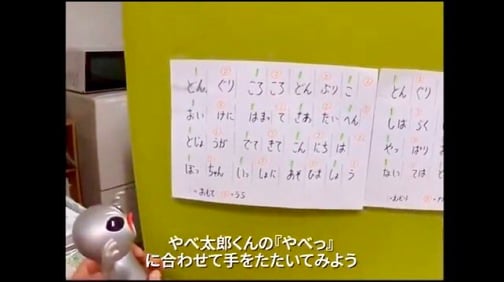 どん ぐり ころ ころ どん ぶり こ
おい けに はまっ て さあ たい へん
どじょ うが でて きて こん にち は
ぼっ ちゃん いっ しょに あそ びま しょ う
どん ぐり
しば らく
やっ ぱり
ない ては
やべ太郎くんの『やべっ』
に合わせて手をたたいてみよう